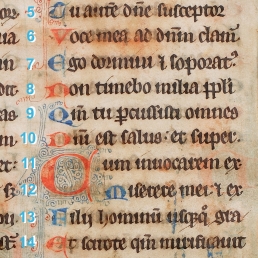 5 Tu autē dn̄e susceptor
6 Voce mea ad dn̄m clam
7 Ego dormiui ⁊ soporat
8 Non timebo milia ppl̄i
9 Qm̄ tu percussisti omnes
10 Dn̄i est salus et super
11 Cum inuocarem ex
12 Miserere mei ⁊ ex
13 Filij hominū gra
14 Et scitote qm̄ mirificauit